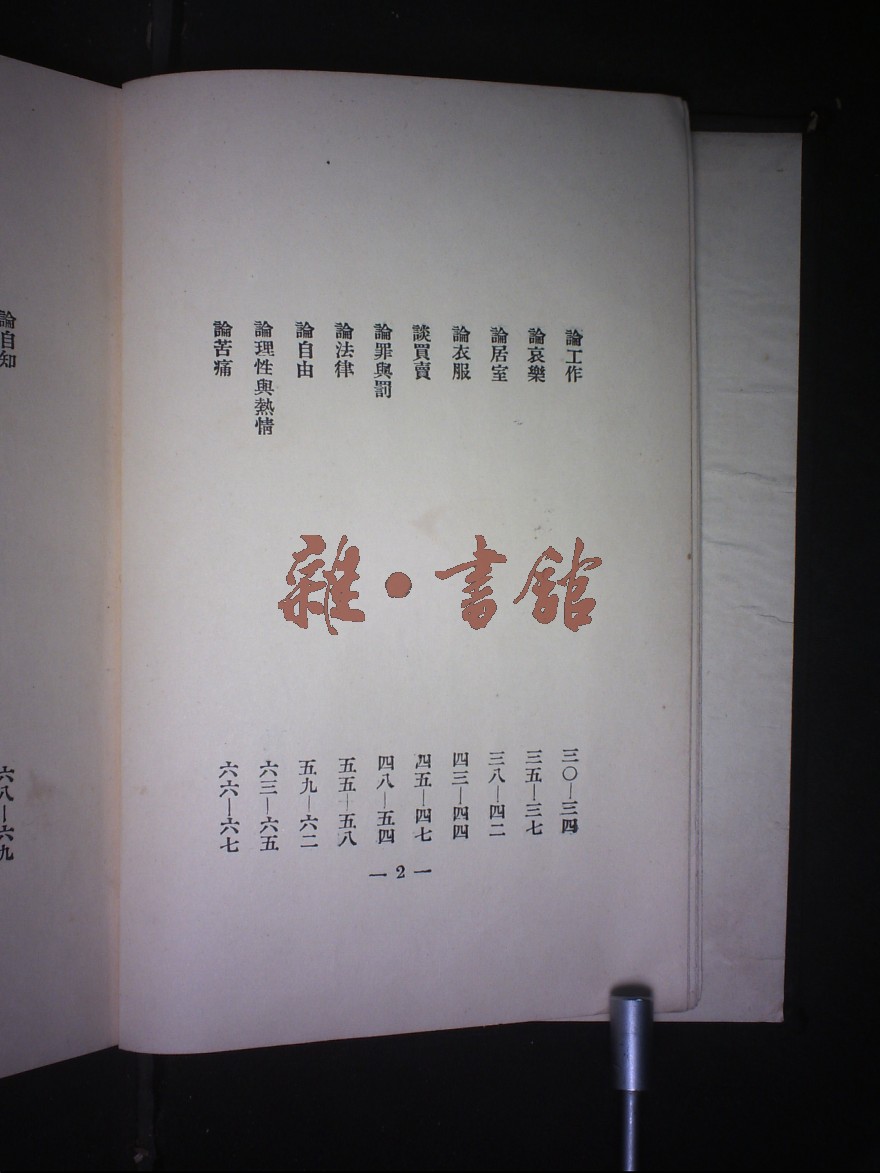 論工作 三〇—三四
論哀樂 三五—三七
論居室 三八—四二
論衣服 四三—四四
談買賣 四五—四七
論罪與罰 四八—五四
論法律 五五—五八
論自由 五九—六二
論理性與熱情 六三—六五
論苦痛 六六—六七
— 2 —
雜·書館
論自知 六八—六九